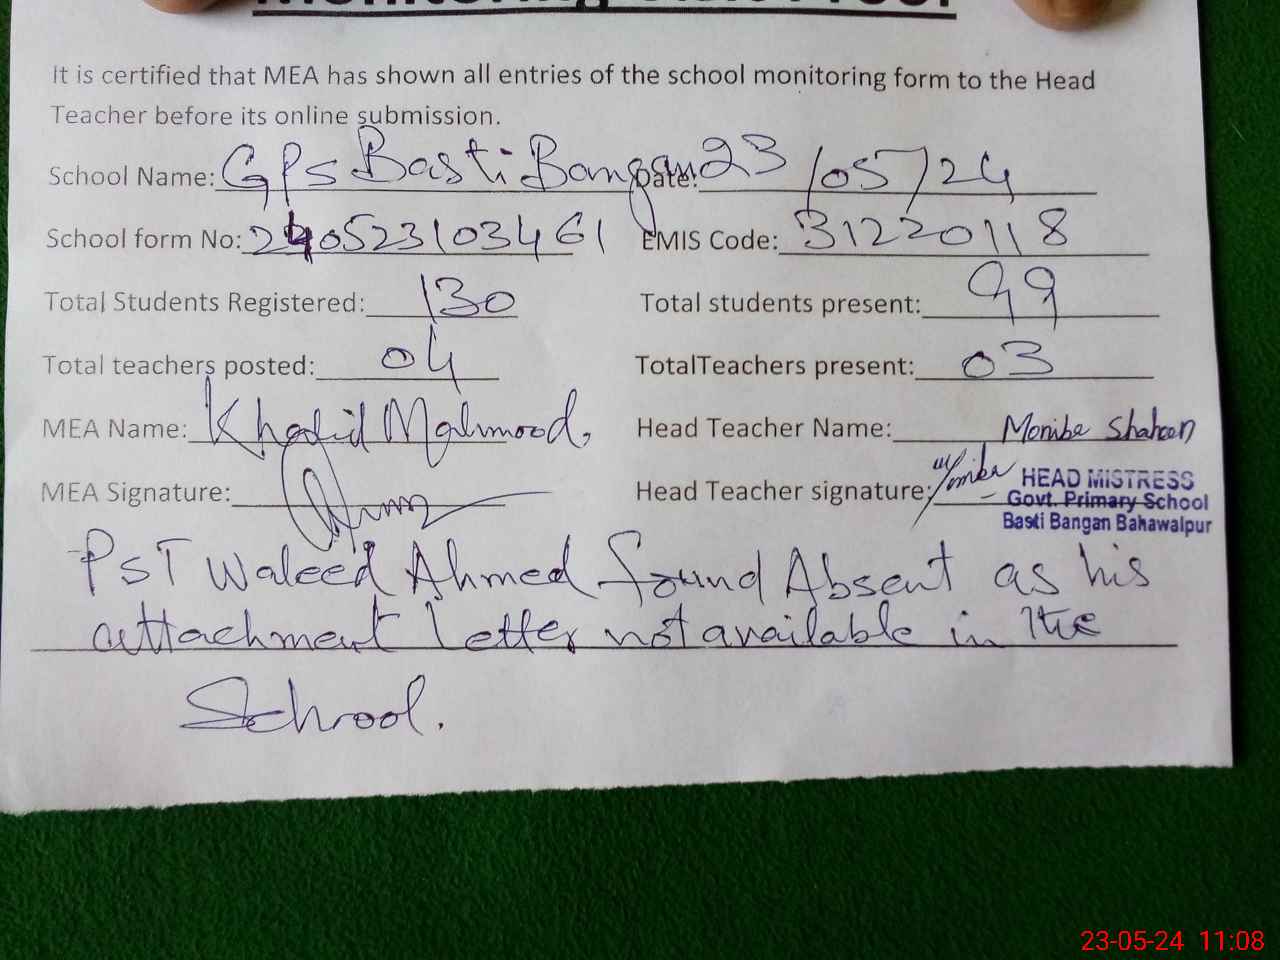 Monitoring Visit Proof
It is certified that MEA has shown all entries of the school monitoring form to the Head
Teacher before its online submission.
School Name: GPS Basti Bangan Date: 23/05/24
School form No: 240523103461 EMIS Code: 31220118
Total Students Registered: 130 Total students present: 99
Total teachers posted: 04 TotalTeachers present: 03
MEA Name: Khalid Mahmood, Head Teacher Name: Moniba Shaheen
MEA Signature: Head Teacher signature: Moniba
HEAD MISTRESS
Govt. Primary School
Basti Bangan Bahawalpur
PST Waleed Ahmed found Absent as his
attachment letter not available in the
School.
23-05-24 11:08